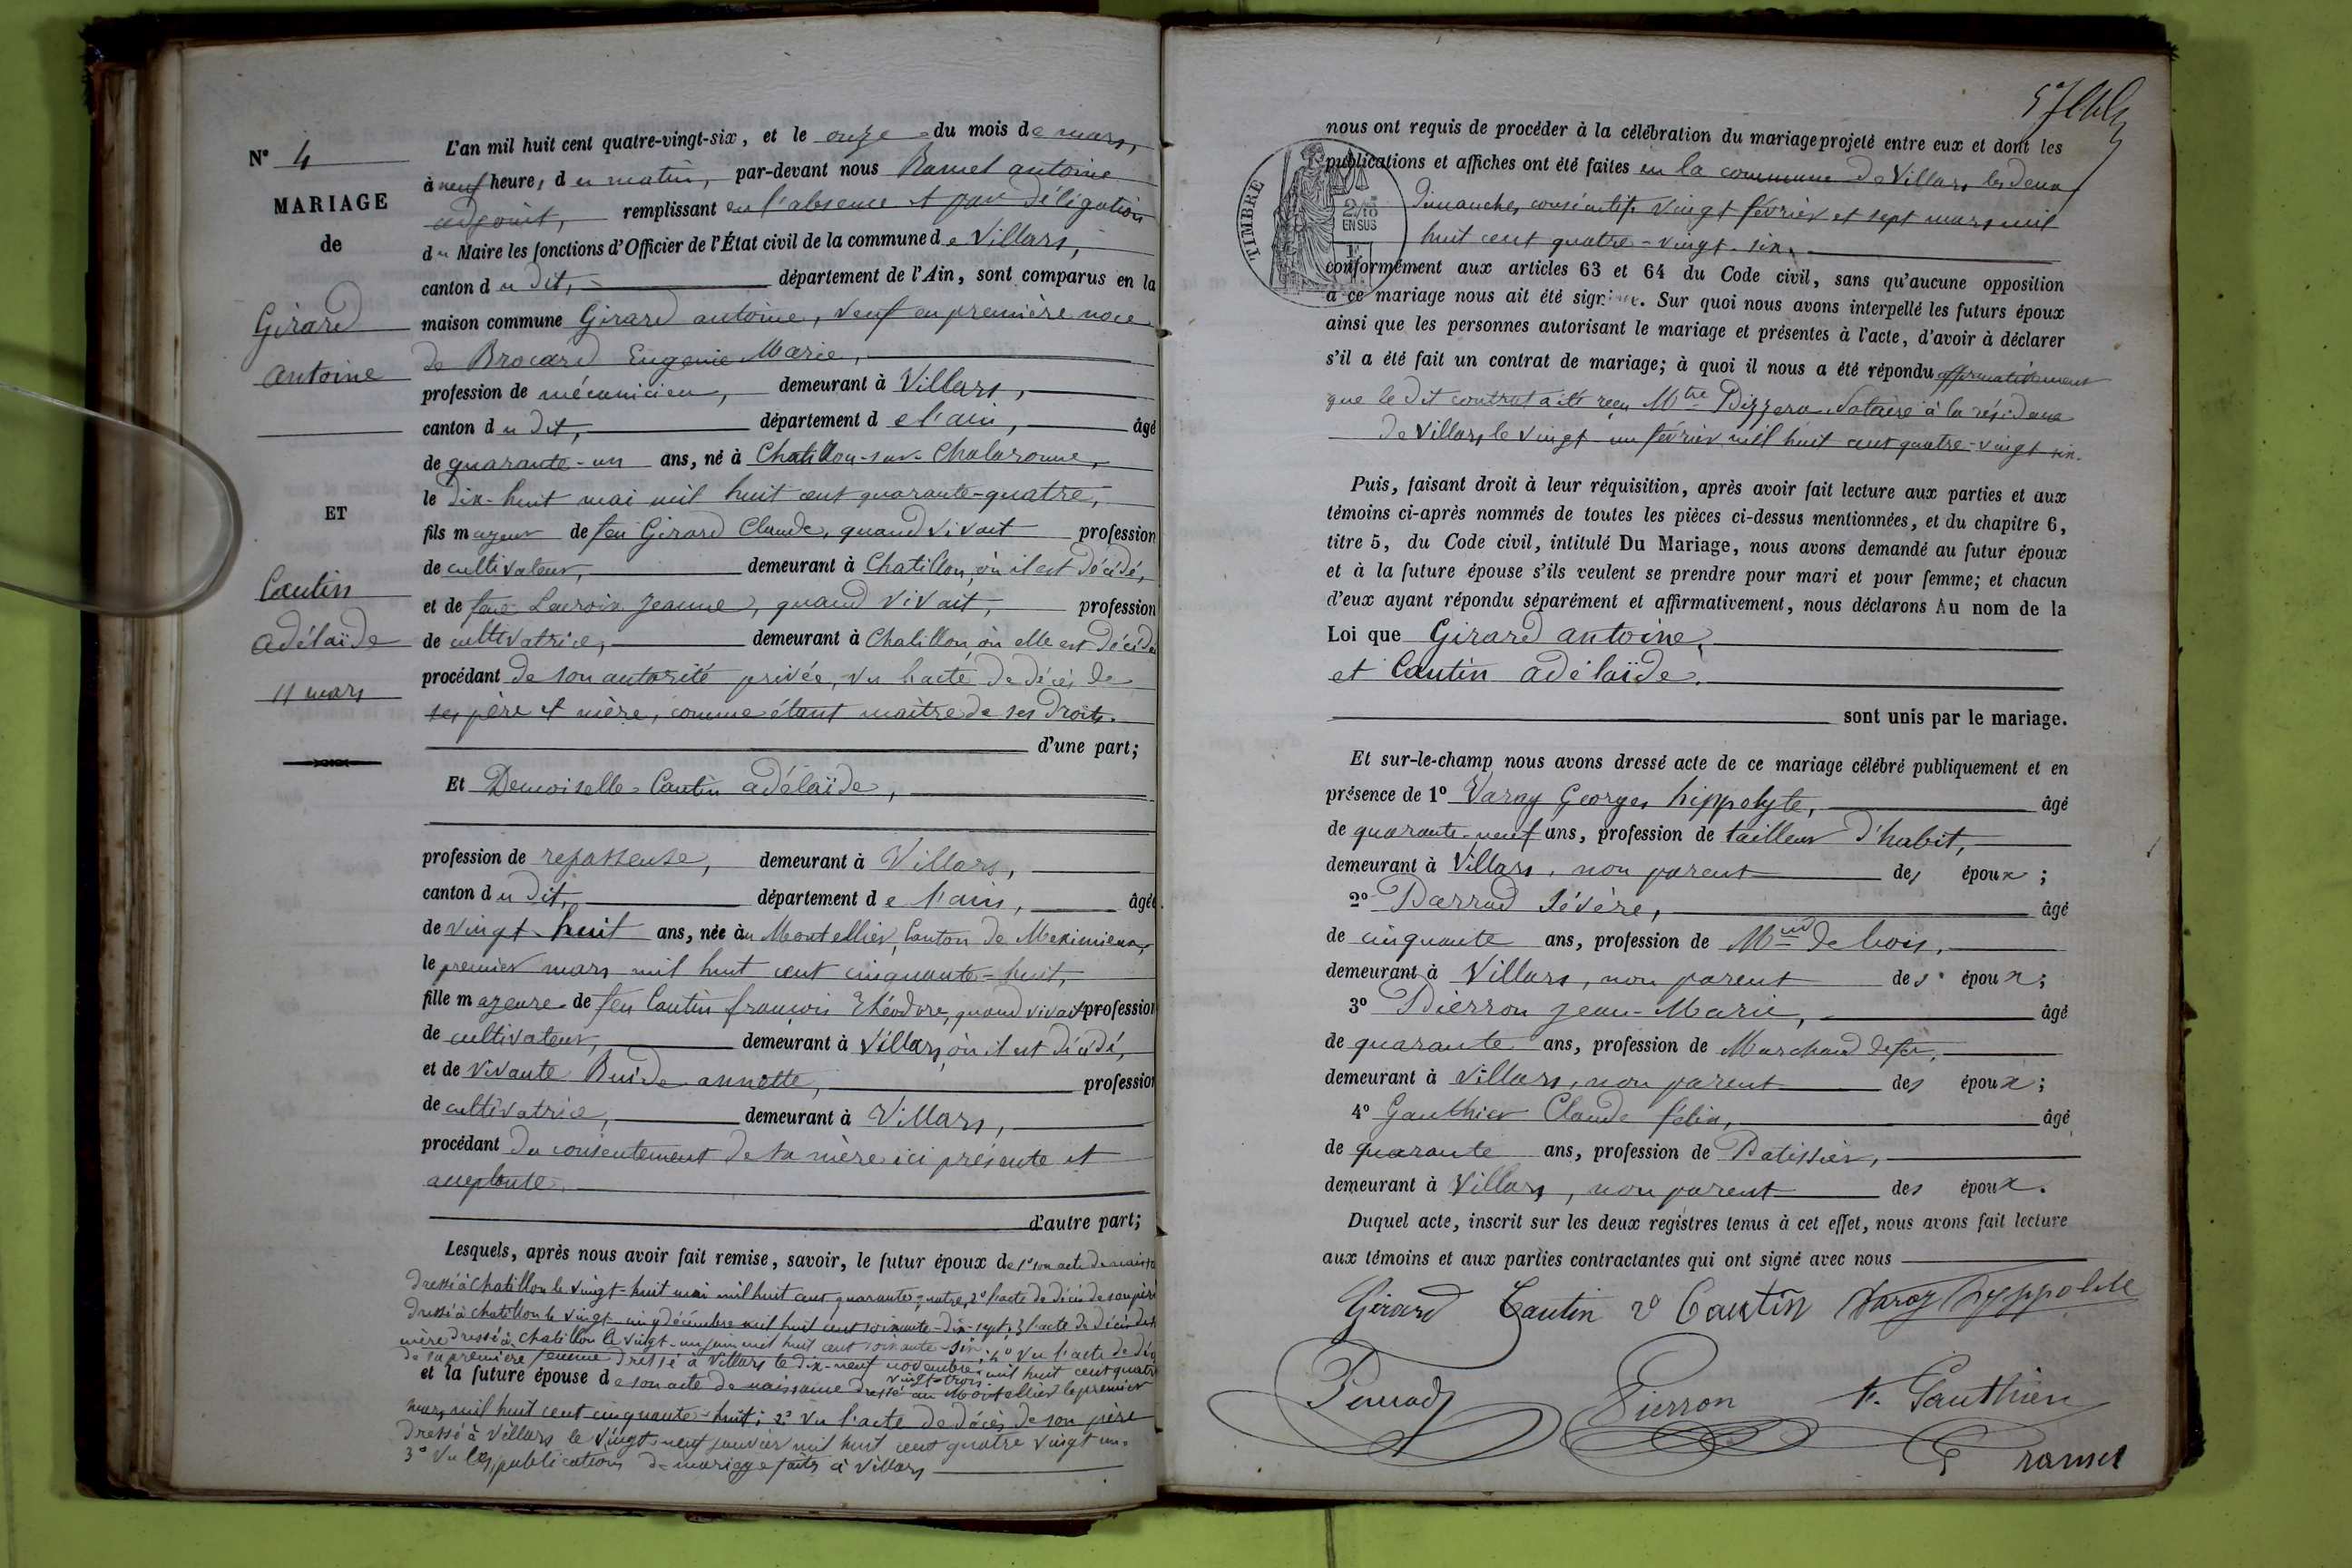 N° 4
MARIAGE
de
Girard
Antoine
ET
Cautin
Adélaïde
11 mars
L'an mil huit cent quatre-vingt-six, et le onze du mois de mars,
à neuf heure, du matin, par-devant nous Ramel antoine
adjoint, remplissant en l'absence et par délégation
du Maire les fonctions d'Officier de l'État civil de la commune de Villars,
canton du dit, département de l'Ain, sont comparus en la
maison commune Girard antoine, veuf en première noce
de Brocard Eugenie Marie,
profession de mécanicien, demeurant à Villars,
canton du dit, département de l'ain, âgé
de quarante-un ans, né à Chatillon-sur-Chalaronne,
le dix-huit mai mil huit cent quarante-quatre,
fils majeur de feu Girard Claude, quand vivait profession
de cultivateur, demeurant à Chatillon, où il est décédé,
et de feue Lacroix Jeanne, quand vivait, profession
de cultivatrice, demeurant à Chatillon, où elle est décédée
procédant de son autorité privée, vu l'acte de décès de
ses père et mère, comme étant maître de ses droits.
d'une part;
Et Demoiselle Cautin adélaïde,
profession de repasseuse, demeurant à Villars,
canton du dit, département de l'ain, âgée
de vingt-huit ans, née au Montellier, Canton de Meximieux,
le premier mars mil huit cent cinquante-huit,
fille majeure de feu Cautin françois Théodore, quand vivait profession
de cultivateur, demeurant à Villars, où il est décédé,
et de vivante Buide annette, profession
de cultivatrice, demeurant à Villars,
procédant du consentement de sa mère ici présente et
acceptante.
d'autre part;
Lesquels, après nous avoir fait remise, savoir, le futur époux de 1° son acte de naissance
dressé à Chatillon le vingt-huit mai mil huit cent quarante quatre, 2° l'acte de décès de son père
dressé à Chatillon le vingt-cinq décembre mil huit cent soixante-dix-sept, 3° l'acte de décès de sa
mère dressé à Chatillon le vingt-un juin mil huit cent soixante-six; 4° vu l'acte de décès
de sa première femme dressé à Villars le dix-neuf novembre mil huit cent quatre
vingt-trois.
et la future épouse de son acte de naissance dressé au Montellier le premier
mars mil huit cent cinquante-huit; 2° vu l'acte de décès de son père
dressé à Villars le vingt-neuf janvier mil huit cent quatre vingt un.
3° vu les publications de mariage faites à Villars
nous ont requis de procéder à la célébration du mariage projeté entre eux et dont les
publications et affiches ont été faites en la commune de Villars les deux
dimanches consécutifs vingt février et sept mars mil
huit cent quatre-vingt-six,
TIMBRE
EN SUS
conformément aux articles 63 et 64 du Code civil, sans qu'aucune opposition
à ce mariage nous ait été signifiée. Sur quoi nous avons interpellé les futurs époux
ainsi que les personnes autorisant le mariage et présentes à l'acte, d'avoir à déclarer
s'il a été fait un contrat de mariage; à quoi il nous a été répondu affirmativement
que le dit contrat a été reçu Mtre Pizzera Notaire à la résidence
de Villars, le vingt-un février mil huit cent quatre-vingt-six.
Puis, faisant droit à leur réquisition, après avoir fait lecture aux parties et aux
témoins ci-après nommés de toutes les pièces ci-dessus mentionnées, et du chapitre 6,
titre 5, du Code civil, intitulé Du Mariage, nous avons demandé au futur époux
et à la future épouse s'ils veulent se prendre pour mari et pour femme; et chacun
d'eux ayant répondu séparément et affirmativement, nous déclarons Au nom de la
Loi que Girard antoine,
et Cautin adélaïde.
sont unis par le mariage.
Et sur-le-champ nous avons dressé acte de ce mariage célébré publiquement et en
présence de 1° Varay Georges hippolyte, âgé
de quarante-neuf ans, profession de tailleur d'habit,
demeurant à Villars, non parent des époux;
2° Perrad Sévère, âgé
de cinquante ans, profession de Mnd de bois,
demeurant à Villars, non parent des époux;
3° Pierron Jean-Marie, âgé
de quarante ans, profession de Marchand de fer,
demeurant à Villars, non parent des époux;
4° Gauthier Claude félix, âgé
de quarante ans, profession de Patissier,
demeurant à Villars, non parent des époux.
Duquel acte, inscrit sur les deux registres tenus à cet effet, nous avons fait lecture
aux témoins et aux parties contractantes qui ont signé avec nous
Girard Cautin 2° Cautin Varay hyppolite
Perrad Pierron f. Gauthier
ramel